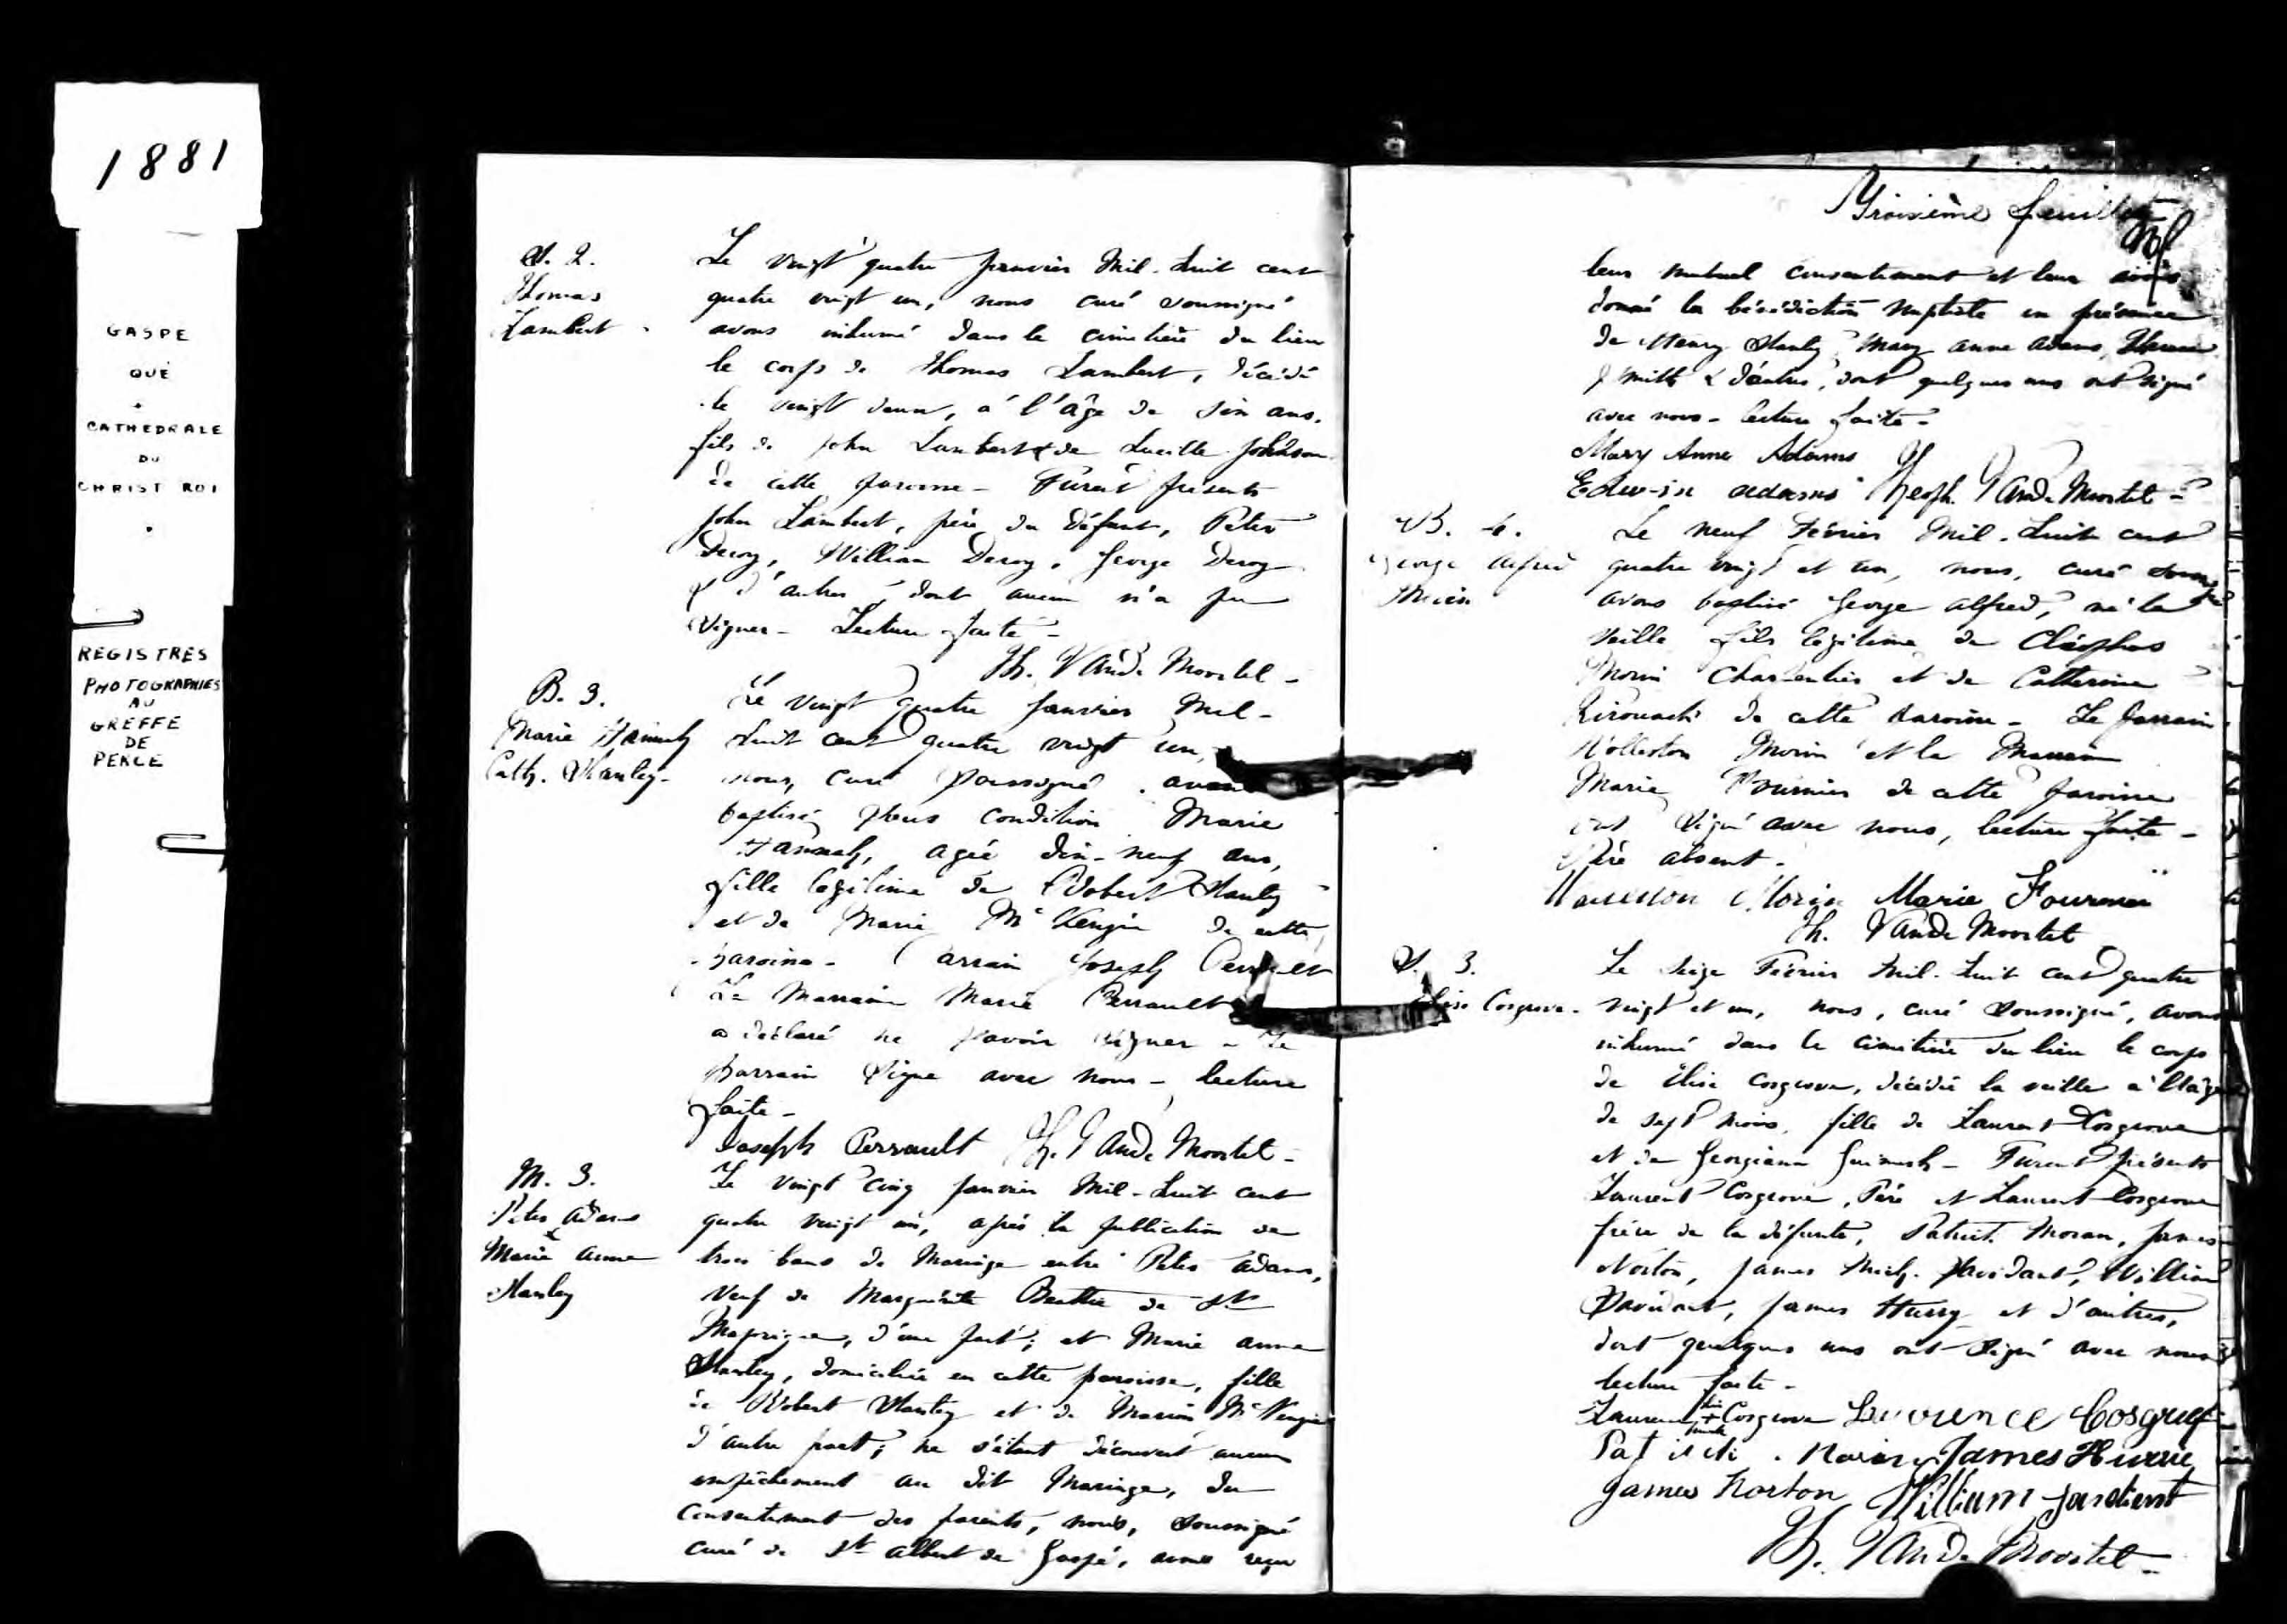 1881
GASPE
QUÉ
CATHEDRALE
DU
CHRIST ROI
REGISTRES
PHOTOGRAPHIES
AU
GREFFE
DE
PERCE
S. 2.
Thomas
Lambert
Le vingt quatre janvier Mil-huit cent
quatre vingt un, nous curé soussigné
avons inhumé dans le cimetière du lieu
le corps de Thomas Lambert, décédé
le vingt deux, à l'âge de six ans.
fils de John Lambert & de Lucille Johnson
de cette paroisse - Furent présents
John Lambert, père du défunt, Peter
Deroy, William Deroy, George Deroy
& d'autres, dont aucun n'a pu
signer - Lecture faite -
Th. Vande Moortel -
B. 3.
Marie Hannah
Cath. Stanley -
Le vingt quatre janvier Mil-
huit cent quatre vingt un,
nous, curé soussigné avons
baptisé sous condition Marie
Hannah, agée dix-neuf ans,
fille légitime de Robert Stanley
et de Marie McKenzie de cette
paroisse - Parrain Joseph Perrault
La Marraine Marie Perrault
a déclaré ne savoir signer - Le
Parrain signe avec nous - lecture
faite -
Joseph Perrault Th. Vande Moortel -
M. 3.
Peter Adams
&
Marie Anne
Stanley
Le vingt cinq janvier Mil-huit cent
quatre vingt un, après la publication de
trois bans de Mariage entre Peter Adams,
veuf de Marguérite Beattie de St
d'une part; et Marie Anne
Stanley, domiciliée en cette paroisse, fille
de Robert Stanley et de Marie McKenzie
d'autre part; ne s'étant découvert aucun
empêchement au dit Mariage, du
consentement des parents, nous, soussigné
curé de St Albert de Gaspé, avons reçu
Troisième feuillet
leur mutuel consentement et leur avons
donné la bénédiction nuptiale en présence
de Henry Stanley, Mary Anne Adams,
Smith & d'autres, dont quelques uns ont signé
avec nous - lecture faite -
Mary Anne Adams
Edwin Adams Theoph. Vande Moortel -
B. 4.
George Alfred
Morin
Le neuf Février Mil-huit cent
quatre vingt et un, nous, curé soussigné
avons baptisé George Alfred, né la
veille fils légitime de Cléophas
Morin Charpentier et de Catherine
de cette paroisse - Le parrain
Morin et la Marraine
Marie Fournier de cette paroisse
ont signé avec nous, lecture faite -
Père absent -
Morin Marie Fournier
Th. Vande Moortel
S. 3.
Elise Cosgrove -
Le seize Février Mil-huit cent quatre
vingt et un, nous, curé soussigné, avons
inhumé dans le cimetière du lieu le corps
de Elise Cosgrove, décédée la veille à l'âge
de sept mois, fille de Laurent Cosgrove
et de Georgiana - Furent présents
Laurent Cosgrove, Père et Laurent Cosgrove
frère de la défunte, Patrick Moran, James
Norton, James Mich. William
James Hurry et d'autres,
dont quelques uns ont signé avec nous
lecture faite -
Laurent + Cosgrove Lawrence Cosgrief
James Hurrie
James Norton William
Th. Vande Moortel -